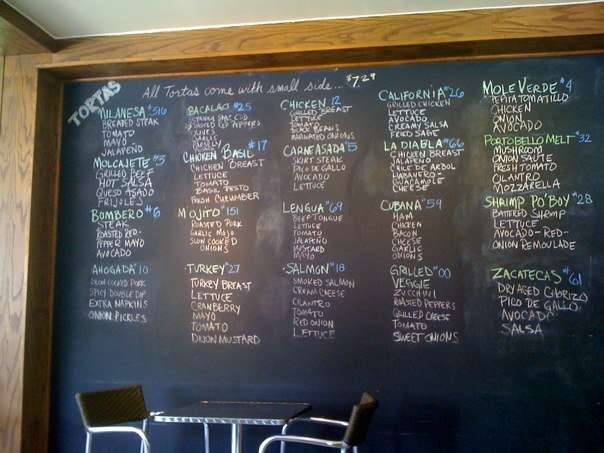 TORTAS
All Tortas come with small side... $7.29
MILANESA #516
BREADED STEAK
TOMATO
MAYO
JALAPEÑO
MOLCAJETE #3
GRILLED BEEF
HOT SALSA
QUESO ASADO
FRIJOLES
BOMBERO #6
STEAK
ROASTED RED-
PEPPER MAYO
AVOCADO
AHOGADA #10
SLOW COOKED PORK
SPICY DOUBLE DIP
EXTRA NAPKINS
ONION PICKLES
BACALAO #25
OLIVES
PARSLEY
CHICKEN BASIL #17
CHICKEN BREAST
LETTUCE
TOMATO
BASIL PESTO
FRESH CUCUMBER
MOJITO #151
ROASTED PORK
GARLIC MAJO
SLOW COOKED
ONIONS
TURKEY #27
TURKEY BREAST
LETTUCE
CRANBERRY
MAYO
TOMATO
DIJON MUSTARD
CHICKEN 12
GRILLED BREAST
LETTUCE
BLACK BEANS
MARINATED ONIONS
CARNE ASADA #5
SKIRT STEAK
PICO DE GALLO
AVOCADO
LETTUCE
LENGUA #69
BEEF TONGUE
LETTUCE
TOMATO
JALAPENO
MUSTARD
MAYO
SALMON #18
SMOKED SALMON
CREAM CHEESE
CILANTRO
TOMATO
RED ONION
LETTUCE
CALIFORNIA #26
GRILLED CHICKEN
LETTUCE
AVOCADO
CREAMY SALSA
FRIED SAGE
LA DIABLA #666
CHICKEN BREAST
JALAPENO
CHILE DE ARBOL
HABANERO-
GUACAMOLE
CHEESE
CUBANA #59
HAM
CHICKEN
BACON
CHEESE
GARLIC
ONIONS
GRILLED #00
VEGGIE
ZUCCHINI
ROASTED PEPPERS
GRILLED CHEESE
TOMATO
SWEET ONIONS
MOLE VERDE #4
PEPITA TOMATILLO
CHICKEN
ONION
AVOCADO
PORTOBELLO MELT #32
MUSHROOM
ONION SAUTE
FRESH TOMATO
CILANTRO
MOZZARELLA
SHRIMP PO'BOY #28
BATTERED SHRIMP
LETTUCE
AVOCADO-RED-
ONION REMOULADE
ZACATECAS #61
DRY AGED CHORIZO
PICO DE GALLO
AVOCADO
SALSA